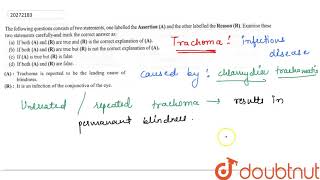 20272183
The following questions consists of two statements, one labelled the Assertion (A) and the other labelled the Reason (R). Examine these
two statements carefully and mark the correct answer as:
(a) If both (A) and (R) are true and (R) is the correct explanation of (A).
(b) If both (A) and (R) are true but (R) is not the correct explanation of (A).
(c) If (A) is true but (R) is false
(d) If both (A) and (R) are false.
(A) : Trachoma is reported to be the leading cause of
blindness.
(R) : It is an infection of the conjunctiva of the eye.
Trachoma : infectious
disease
caused by : chlamydia trachomatis
Untreated / repeated trachoma → results in
permanant blindness.
doubtnut